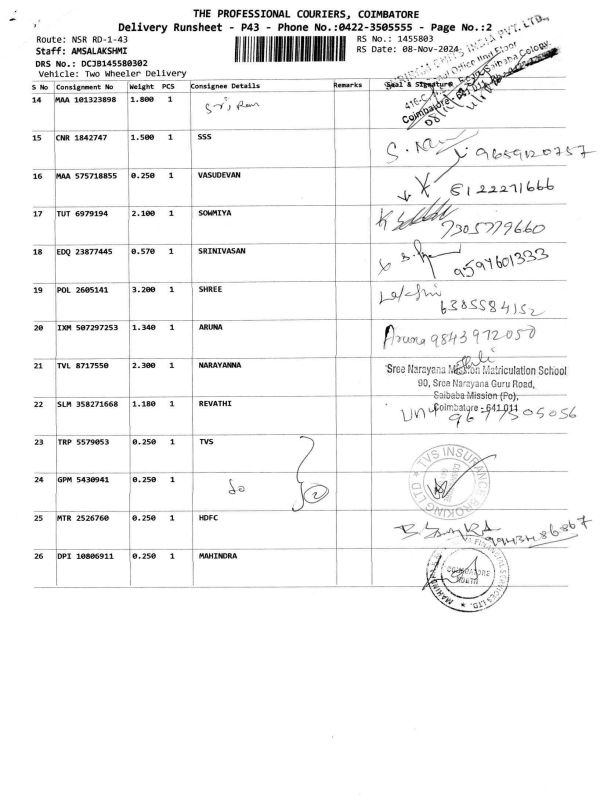 THE PROFESSIONAL COURIERS, COIMBATORE
Delivery Runsheet - P43 - Phone No.:0422-3505555 - Page No.:2
Route: NSR RD-1-43
RS No.: 1455803
Staff: AMSALAKSHMI
RS Date: 08-Nov-2024
DRS No.: DCJB145580302
Vehicle: Two Wheeler Delivery
S No Consignment No Weight PCS Consignee Details Remarks Seal & Signature
14 MAA 101323898 1.800 1
15 CNR 1842747 1.500 1 SSS 9659120757
16 MAA 575718855 0.250 1 VASUDEVAN 8122271666
17 TUT 6979194 2.100 1 SOWMIYA 7305779660
18 EDQ 23877445 0.570 1 SRINIVASAN 9597601333
19 POL 2605141 3.200 1 SHREE 6385584152
20 IXM 507297253 1.340 1 ARUNA Aruna 9843972050
21 TVL 8717550 2.300 1 NARAYANNA
Sree Narayana Mission Matriculation School
90, Sree Narayana Guru Road,
Saibaba Mission (Po),
Coimbatore - 641 011
22 SLM 358271668 1.180 1 REVATHI
23 TRP 5579053 0.250 1 TVS
TVS INSURANCE BROKING LTD
24 GPM 5430941 0.250 1 do 2
25 MTR 2526760 0.250 1 HDFC 9943486867
26 DPI 10806911 0.250 1 MAHINDRA
COIMBATORE
NORTH